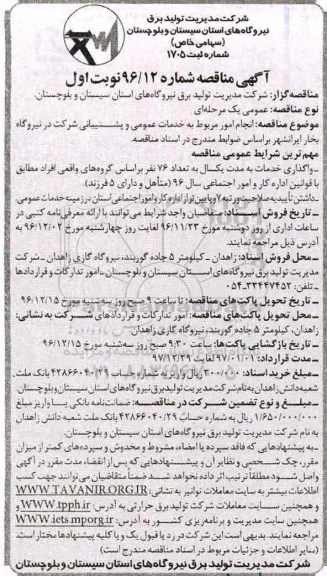 شرکت مدیریت تولید برق
نیروگاه‌های استان سیستان و بلوچستان
(سهامی خاص)
شماره ثبت ۱۷۰۵
آگهی مناقصه شماره ۹۶/۱۲ نوبت اول
مناقصه‌گزار: شرکت مدیریت تولید برق نیروگاه‌های استان سیستان و بلوچستان.
نوع مناقصه: عمومی یک مرحله‌ای
موضوع مناقصه: انجام امور مربوط به خدمات عمومی و پشتیبانی شرکت در نیروگاه
بخار ایرانشهر براساس ضوابط مندرج در اسناد مناقصه.
مهم‌ترین شرایط عمومی مناقصه
ـ واگذاری خدمات به مدت یکسال به تعداد ۷۶ نفر براساس گروه‌های واقعی افراد مطابق
با قوانین اداره کار و امور اجتماعی سال ۹۶ (متأهل و دارای ۵ فرزند).
ـ داشتن تأییدیه صلاحیت و رتبه ۷ و پایین‌تر از اداره کار و امور اجتماعی استان در زمینه خدمات عمومی.
ـ تاریخ فروش اسناد: متقاضیان واجد شرایط می‌توانند با ارائه معرفی‌نامه کتبی در
ساعات اداری از روز دوشنبه مورخ ۹۶/۱۱/۲۳ لغایت روز چهارشنبه مورخ ۹۶/۱۲/۰۲ به
آدرس ذیل مراجعه نمایند.
ـ محل فروش اسناد: زاهدان ـ کیلومتر ۵ جاده گوربند، نیروگاه گازی زاهدان ـ شرکت
مدیریت تولید برق نیروگاه‌های استان سیستان و بلوچستان ـ امور تدارکات و قراردادها
ـ تلفن: ۳۳۴۴۷۴۵۲-۰۵۴
ـ تاریخ تحویل پاکت‌های مناقصه: تا ساعت ۹ صبح روز سه‌شنبه مورخ ۹۶/۱۲/۱۵
ـ محل تحویل پاکت‌های مناقصه: امور تدارکات و قراردادهای شرکت به نشانی:
زاهدان، کیلومتر ۵ جاده گوربند، نیروگاه گازی زاهدان.
ـ تاریخ بازگشایی پاکت‌ها: ساعت ۹:۳۰ صبح روز سه‌شنبه مورخ ۹۶/۱۲/۱۵
ـ مدت قرارداد: ۹۷/۰۱/۰۱ لغایت ۹۷/۱۲/۲۹
ـ مبلغ خرید اسناد: ۳۰۰/۰۰۰ ریال واریز به شماره حساب ۴۲۸۶۶۰۴۰۲۹ بانک ملت
شعبه دانش زاهدان به نام شرکت مدیریت تولید برق نیروگاه‌های استان سیستان و بلوچستان.
ـ مبلغ و نوع تضمین شرکت در مناقصه: ضمانت‌نامه بانکی یا واریز مبلغ
۱/۶۵۰/۰۰۰/۰۰۰ ریال به شماره حساب ۴۲۸۶۶۰۴۰۲۹ بانک ملت شعبه دانش زاهدان
به نام شرکت مدیریت تولید برق نیروگاه‌های استان سیستان و بلوچستان.
ـ به پیشنهادهایی که فاقد سپرده یا امضاء، مشروط و مخدوش و سپرده‌های کمتر از میزان
مقرر، چک شخصی و نظایر آن و پیشنهادهایی که پس از انقضاء مدت مقرر در آگهی
واصل شود مطلقا ترتیب اثر داده نخواهد شد ضمناً متقاضیان می‌توانند جهت کسب
اطلاعات بیشتر به سایت معاملات توانیر به نشانی: WWW.TAVANIR.ORG.IR
و همچنین سایت معاملات شرکت تولید برق حرارتی به آدرس: www.tpph.ir و
همچنین سایت مدیریت و برنامه‌ریزی کشور به آدرس: www.iets.mporg.ir
مراجعه نمایند. بدیهی است این شرکت در رد یا قبول یک و یا کلیه پیشنهادها مختار است.
(سایر اطلاعات و جزئیات مربوط در اسناد مناقصه مندرج است)
شرکت مدیریت تولید برق نیروگاه‌های استان سیستان و بلوچستان